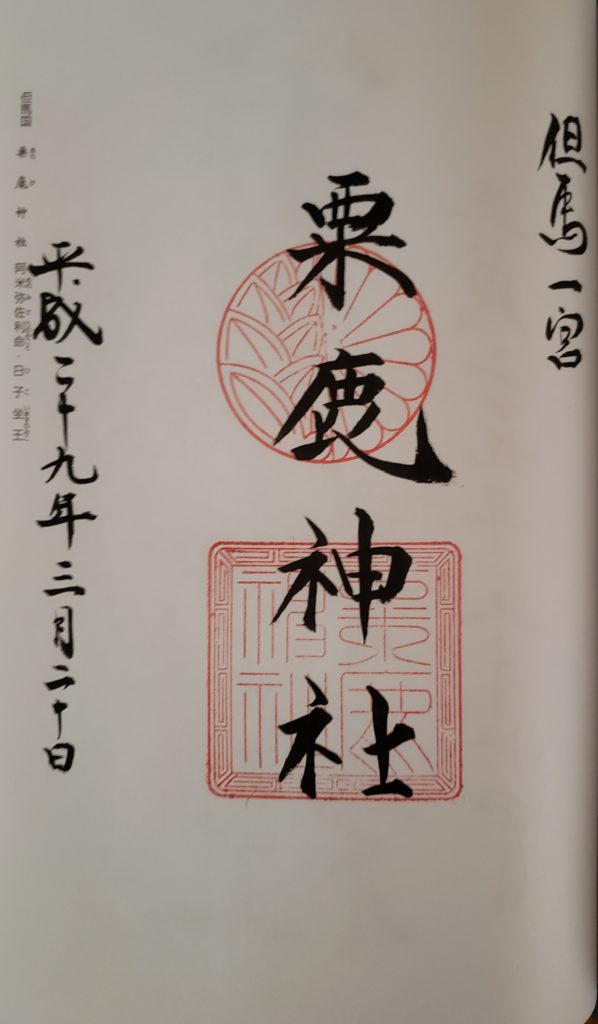 但馬一宮
粟鹿神社
粟鹿神社
平成二十九年三月二十日
但馬国 粟鹿神社 阿米弥佐利命・日子坐王